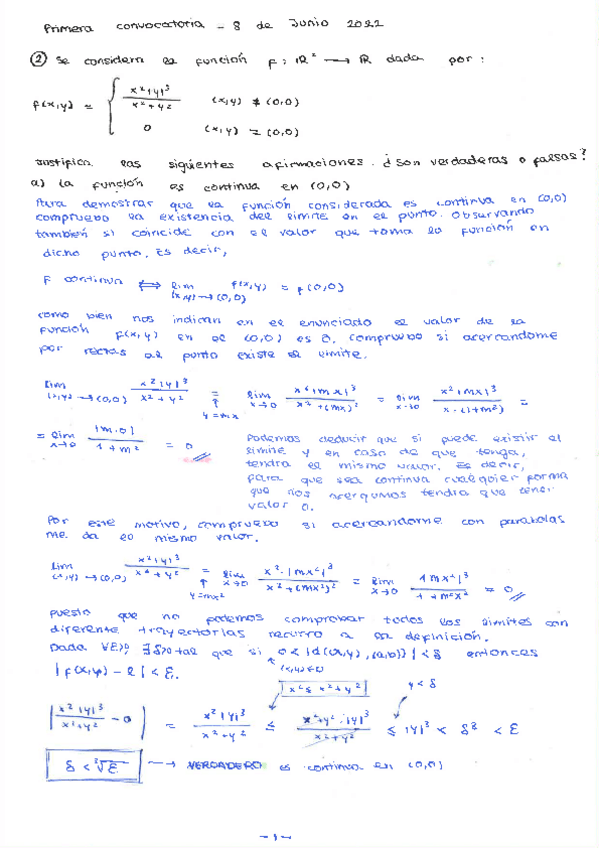 Primera convocatoria - 8 de Junio 2022
② Se considera la función f: ℝ² → ℝ dada por:
f(x,y) = { x²|y|³ / x²+y²   (x,y) ≠ (0,0)
0   (x,y) = (0,0)
Justifica las siguientes afirmaciones. ¿Son verdaderas o falsas?
a) La función es continua en (0,0)
Para demostrar que la función considerada es continua en (0,0)
compruebo la existencia del límite en el punto. Observando
también si coincide con el valor que toma la función en
dicho punto. Es decir,
f continua ⟺ lim (x,y)→(0,0) f(x,y) = f(0,0)
Como bien nos indican en el enunciado el valor de la
función f(x,y) en el (0,0) es 0, compruebo si acercandome
por rectas al punto existe el límite.
lim (x,y)→(0,0) x²|y|³ / x²+y² = (y=mx) lim x→0 x²|mx|³ / x²+(mx)² = lim x→0 x²|mx|³ / x²(1+m²) =
= lim x→0 |m·0| / 1+m² = 0
Podemos deducir que si puede existir el
límite y en caso de que tenga,
tendra el mismo valor. Es decir,
para que sea continua cualquier forma
que nos acerquemos tendra que tener
valor 0.
Por este motivo, compruebo si acercandome con parabolas
me da el mismo valor.
lim (x,y)→(0,0) x²|y|³ / x²+y² = (y=mx²) lim x→0 x²·|mx²|³ / x²+(mx²)² = lim x→0 |mx²|³ / 1+m²x² = 0
Puesto que no podemos comprobar todos los límites con
diferente trayectorias recurro a la definición.
Dada ∀ε>0 ∃δ>0 tal que si 0<|d((x,y),(a,b))|<δ entonces
|f(x,y) - l| < ε.
x² ≤ x²+y²   y < δ
| x²|y|³ / x²+y² - 0 | = x²|y|³ / x²+y² ≤ x²+y²·|y|³ / x²+y² ≤ |y|³ < δ³ < ε
δ < ³√ε → VERDADERO es continua en (0,0)
- 1 -